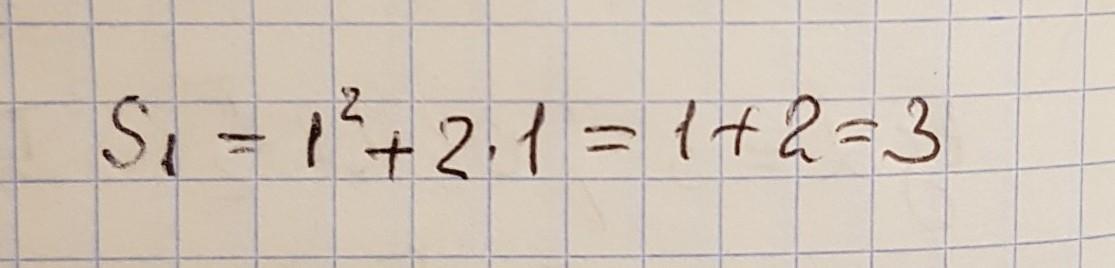 S₁ = 1² + 2·1 = 1 + 2 = 3